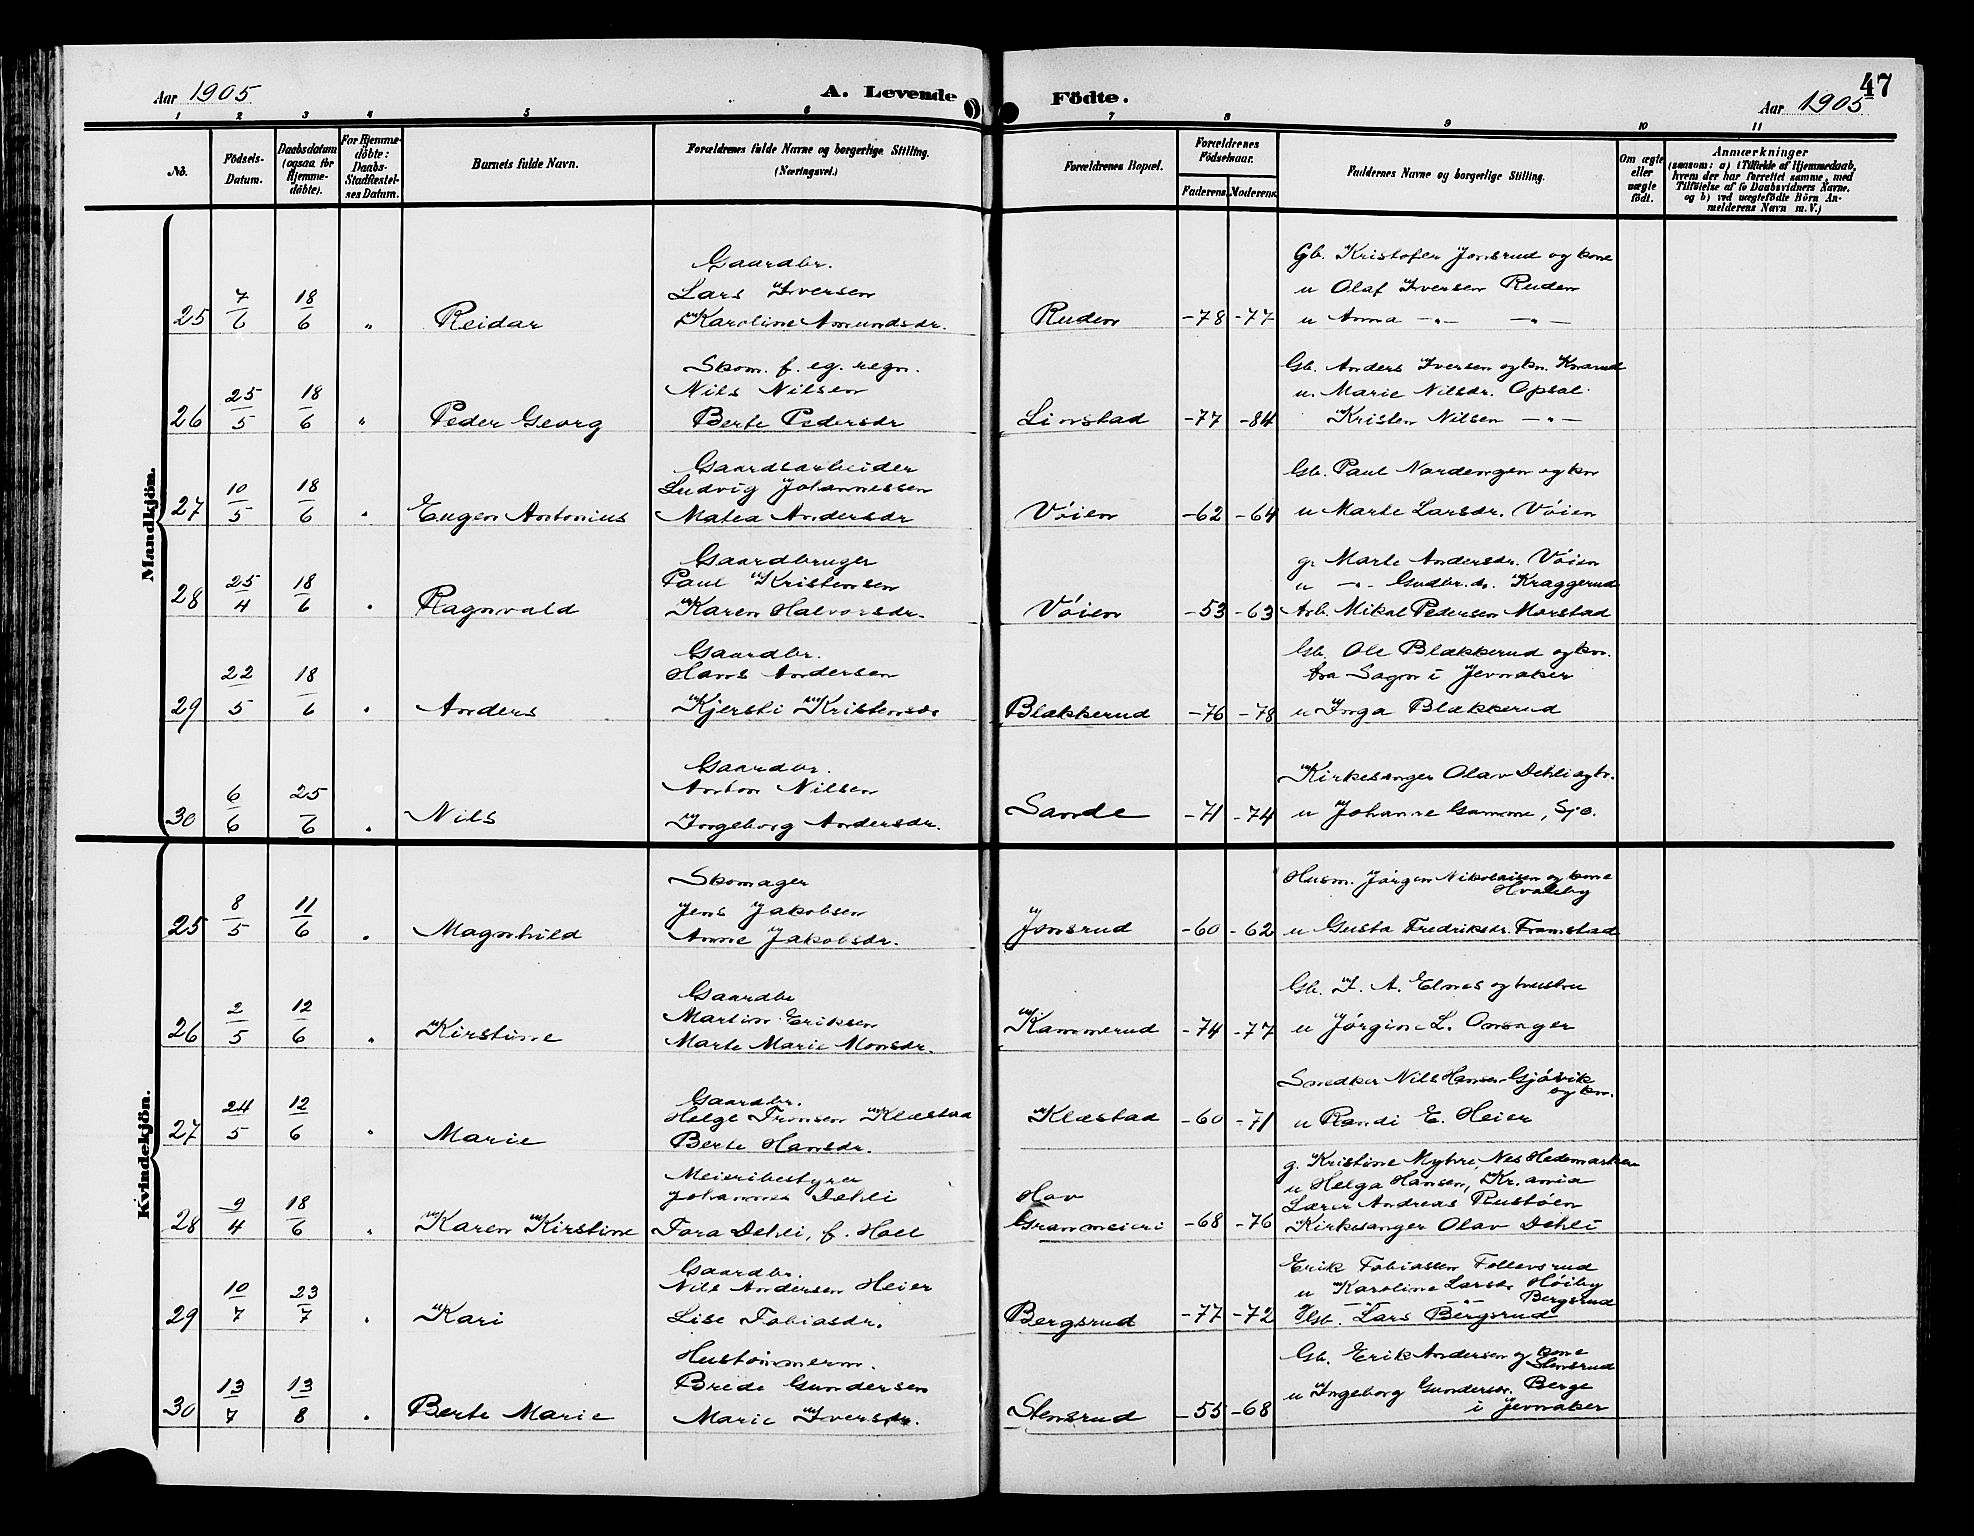 Aar 1905
A. Levende
Födte.
47
Aar 1905
1 2 3 4 5 6 7 8 9 10 11
No.
Födsels-Datum.
Daabsdatum (ogsaa for Hjemme-döbte).
For Hjemme-döbte: Daabs-Stadfæstel-ses Datum.
Barnets fulde Navn.
Forældrenes fulde Navne og borgerlige Stilling.
(Næringsvei.)
Forældrenes Bopæl.
Forældrenes Födselsaar.
Faderens Moderens
Faddernes Navne og borgerlige Stilling.
Om ægte eller uægte födt.
Anmærkninger
(saasom: a) i Tilfælde af Hjemmedaab,
hvem der har forrettet samme, med
Tilföielse af to Daabsvidners Navne.
og b) ved uægtefödte Börn An-
melderens Navn m. V.)
Mandkjön.
Gaardbr.
Lars Iversen
25 7/6 18/6 " Reidar Karoline Amundsdr. Ruden -78 -77
Gb. Kristofer Jonsrud og kone
u Olaf Iversen Ruden
u Anna -"- -"-
Skom. f. eg. regn.
Nils Nilsen
26 25/5 18/6 " Peder Georg Berte Pedersdr Linstad -77 -84
Gb. Anders Iversen og kn. Knarud
u. Marie Nilsdr. Opsal
Kristen Nilsen -"-
Gaardsarbeider
Ludvig Johannessen
27 10/5 18/6 " Eugen Antonius Matea Andersdr Vøien -62 -64
Gb. Paul Nordengen og kn
u Marte Larsdr. Vøien
Gaardbruger
Paul Kristensen
28 25/4 18/6 " Ragnvald Karen Halvorsdr. Vøien -53 -63
g. Marte Andersdr. Vøien
u -"- Gudbr.d. Kraggerud
Arb. Mikal Pedersen Morstad
Gaardbr.
Hans Andersen
29 22/5 18/6 " Anders Kjersti Kristensdr Blækkerud -76 -78
Gb. Ole Blækkerud og kn.
fra Sagn i Jevnaker
u Inga Blækkerud
Gaardbr.
Anton Nilsen
30 6/6 25/6 " Nils Ingeborg Andersdr. Sande -71 -74
Kirkesanger Olav Dehli og fr.
u Johanne Gamme, Sjo.
Kvindekjön.
Skomager
Jens Jakobsen
25 8/5 11/6 " Magnhild Anne Jakobsdr. Jonsrud -60 -62
Husm. Jørgen Nikolaisen og kone
Hvaleby
u Gusta Fredriksdr. Framstad
Gaardbr
Martin Eriksen
26 2/5 12/6 " Kirstine Marte Marie Monsdr. Kammerud -74 -77
Gb. I. A. Elnes og hustru
u Jørgine L. Onsager
Gaardbr.
Helge Tronsen Klæstad
27 24/5 12/6 " Marie Berte Hansdr. Klæstad -60 -71
Snedker Nils Hansen Gjøvik
og kn.
u Randi E. Heier
Meieribestyrer
Johannes Dehli
28 9/4 18/6 " Karen Kirstine Tora Dehli, f. Holl
Hov
Granmeieri -68 -76
g. Kristine Myhre, Nes Hedemarken
u Helga Hansen, Kr.ania
Lærer Andreas Rustøen
Kirkesanger Olav Dehli
Gaardbr.
Nils Andersen Heier
29 10/7 23/7 " Kari Lise Tobiasdr. Bergsrud -77 -72
Erik Tobiassen Tollevsrud
u Karoline Larsdr Høiby
-"- Bergsrud
Gb. Lars Bergsrud
Hustømmerm.
Brede Gundersen
30 13/7 13/8 " Berte Marie Marie Iversdr. Stensrud -55 -68
Gb. Erik Andersen og kone
Stensrud
u Ingeborg Gundersdr. Berge
i Jevnaker